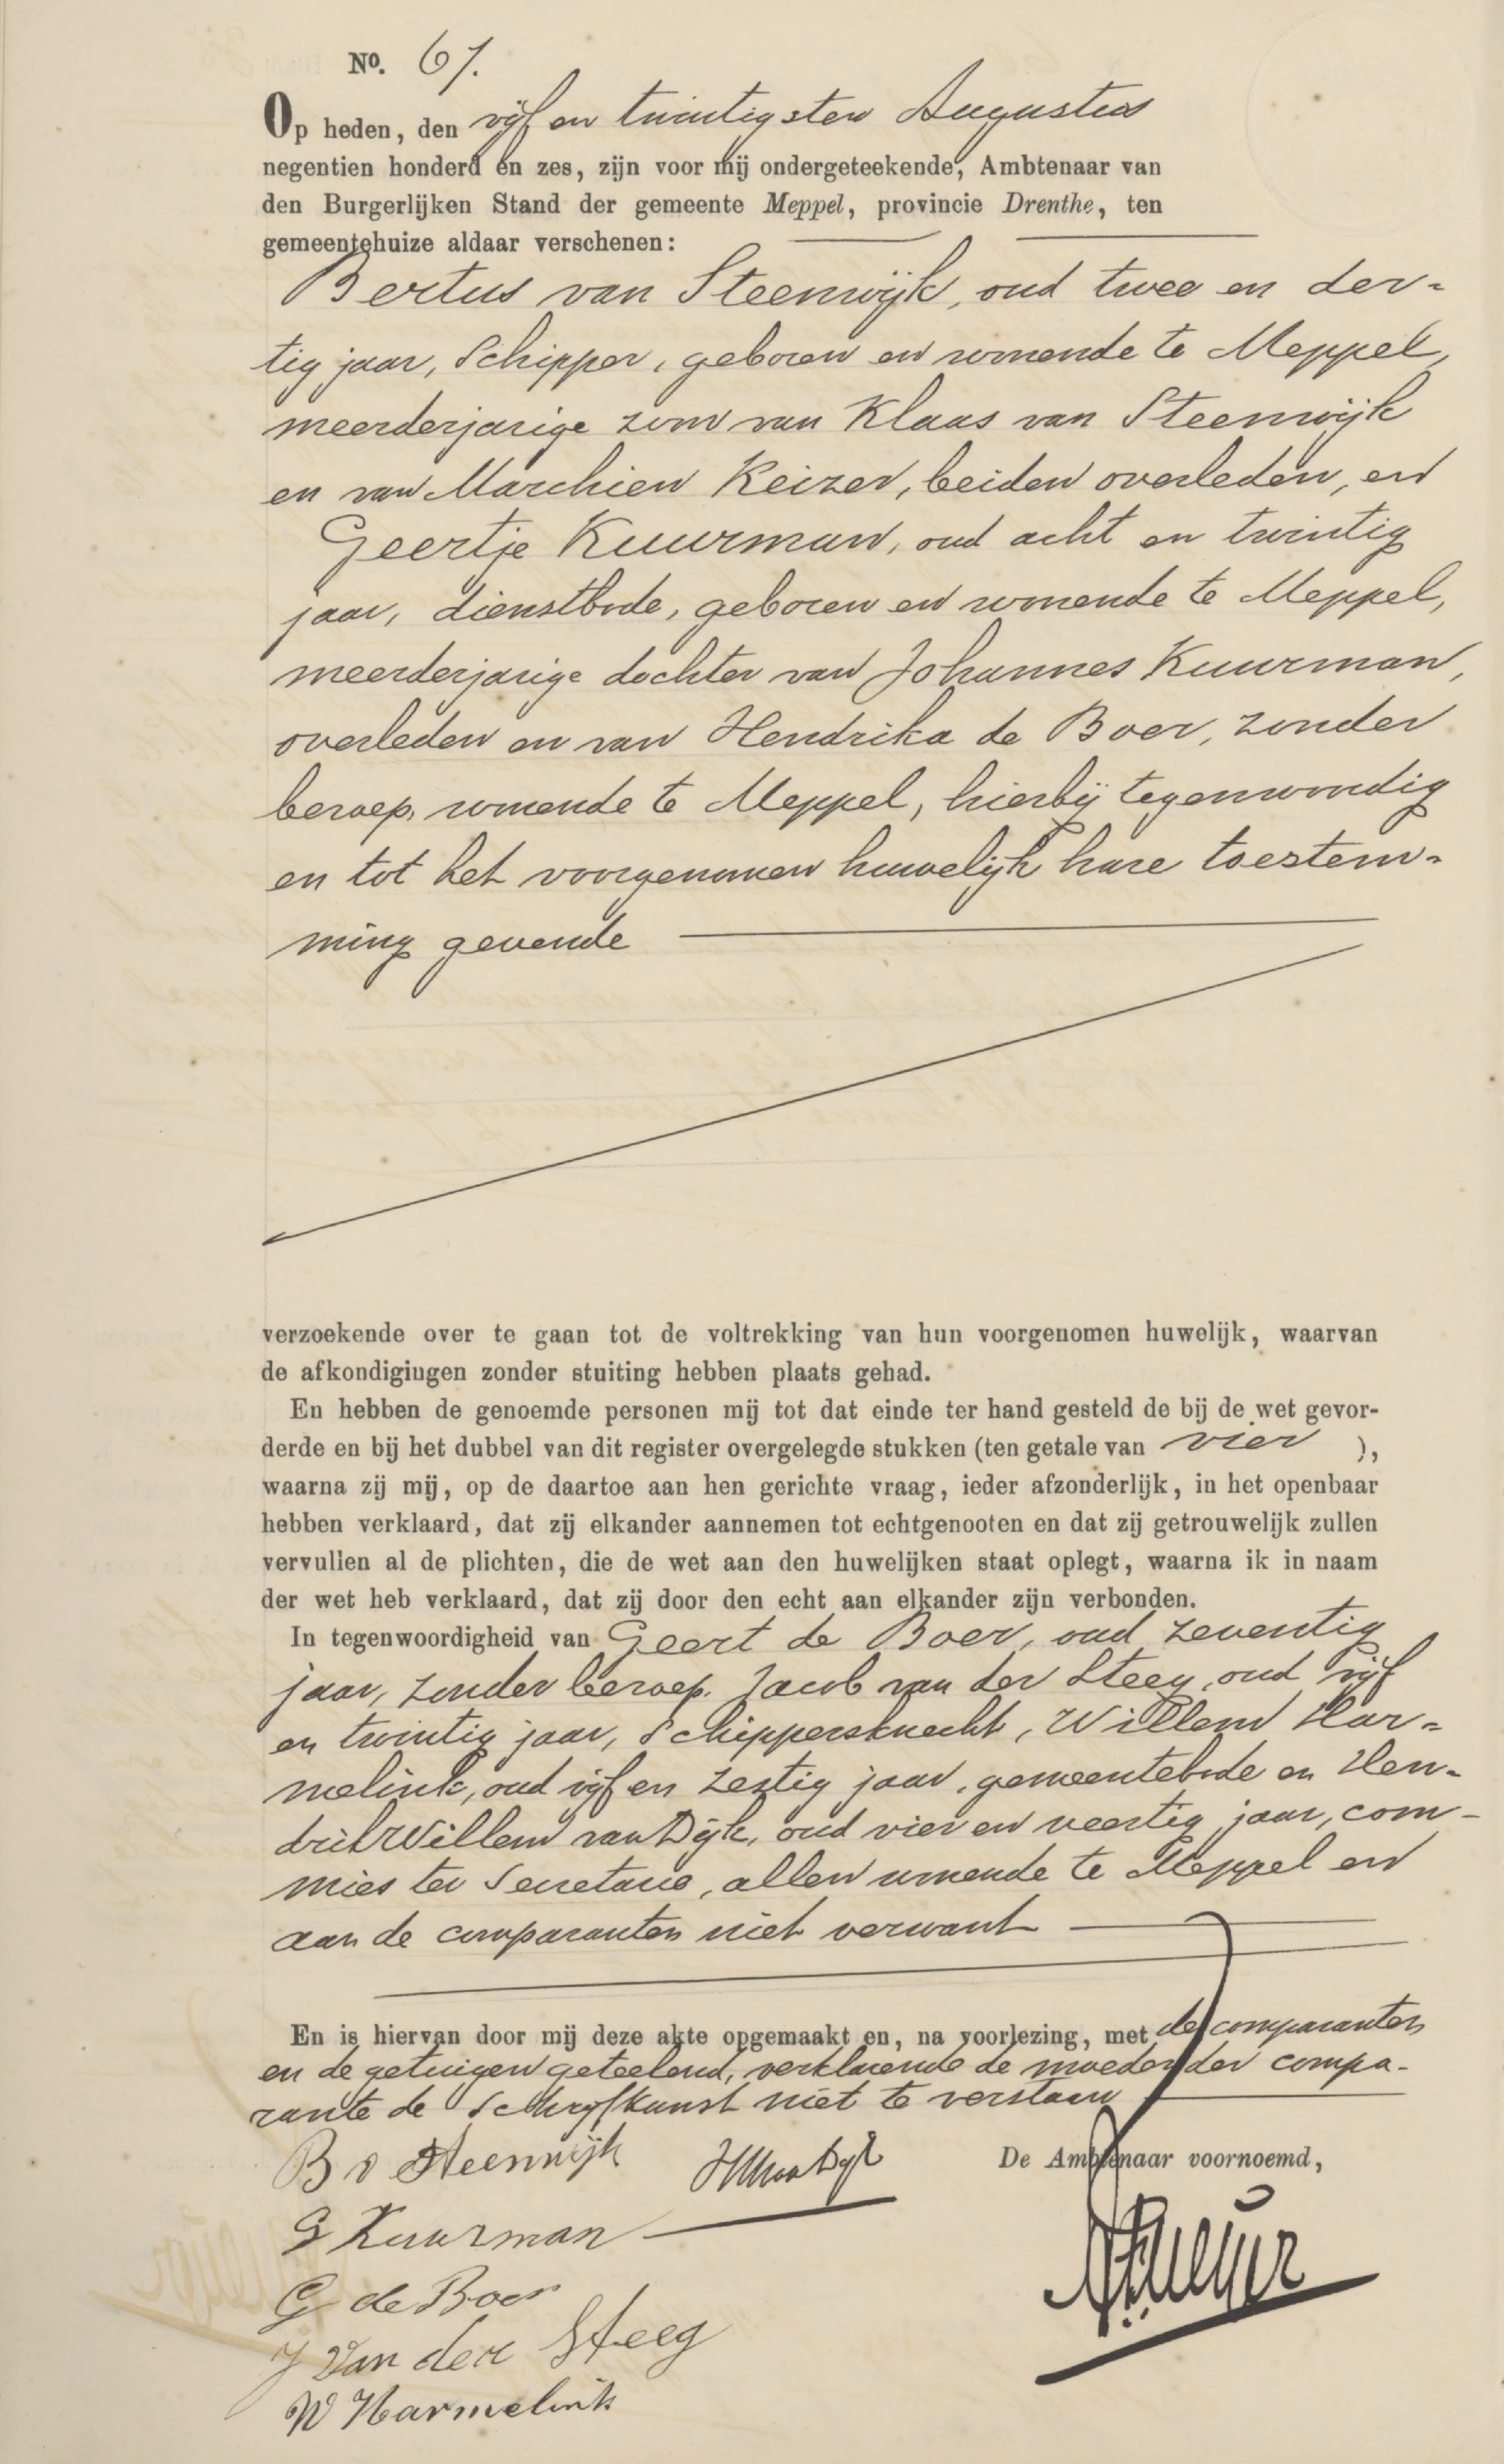 No. 67.
Op heden, den vijf en twintigsten Augustus
negentien honderd en zes, zijn voor mij ondergeteekende, Ambtenaar van
den Burgerlijken Stand der gemeente Meppel, provincie Drenthe, ten
gemeentehuize aldaar verschenen:
Bertus van Steenwijk, oud twee en der-
tig jaar, Schipper, geboren en wonende te Meppel,
meerderjarige zoon van Klaas van Steenwijk
en van Marchien Keizer, beiden overleden, en
Geertje Kuurman, oud acht en twintig
jaar, dienstbode, geboren en wonende te Meppel,
meerderjarige dochter van Johannes Kuurman,
overleden en van Hendrika de Boer, zonder
beroep, wonende te Meppel, hierbij tegenwoordig
en tot het voorgenomen huwelijk hare toestem-
ming gevende
verzoekende over te gaan tot de voltrekking van hun voorgenomen huwelijk, waarvan
de afkondigingen zonder stuiting hebben plaats gehad.
En hebben de genoemde personen mij tot dat einde ter hand gesteld de bij de wet gevor-
derde en bij het dubbel van dit register overgelegde stukken (ten getale van vier ),
waarna zij mij, op de daartoe aan hen gerichte vraag, ieder afzonderlijk, in het openbaar
hebben verklaard, dat zij elkander aannemen tot echtgenooten en dat zij getrouwelijk zullen
vervullen al de plichten, die de wet aan den huwelijken staat oplegt, waarna ik in naam
der wet heb verklaard, dat zij door den echt aan elkander zijn verbonden.
In tegenwoordigheid van Geert de Boer, oud zeventig
jaar, zonder beroep, Jacob van der Steeg, oud vijf
en twintig jaar, Schippersknecht, Willem Har-
melink, oud vijf en zestig jaar, gemeentebode en Hen-
drik Willem van Dijk, oud vier en veertig jaar, com-
mies ter Secretarie, allen wonende te Meppel en
aan de comparanten niet verwant
En is hiervan door mij deze akte opgemaakt en, na voorlezing, met de comparanten
en de getuigen geteekend, verklarende de moeder der compa-
rante de schrijfkunst niet te verstaan
B v Steenwijk
HW van Dijk
De Ambtenaar voornoemd,
G Kuurman
G de Boer
J Van der Steeg
W Harmelink